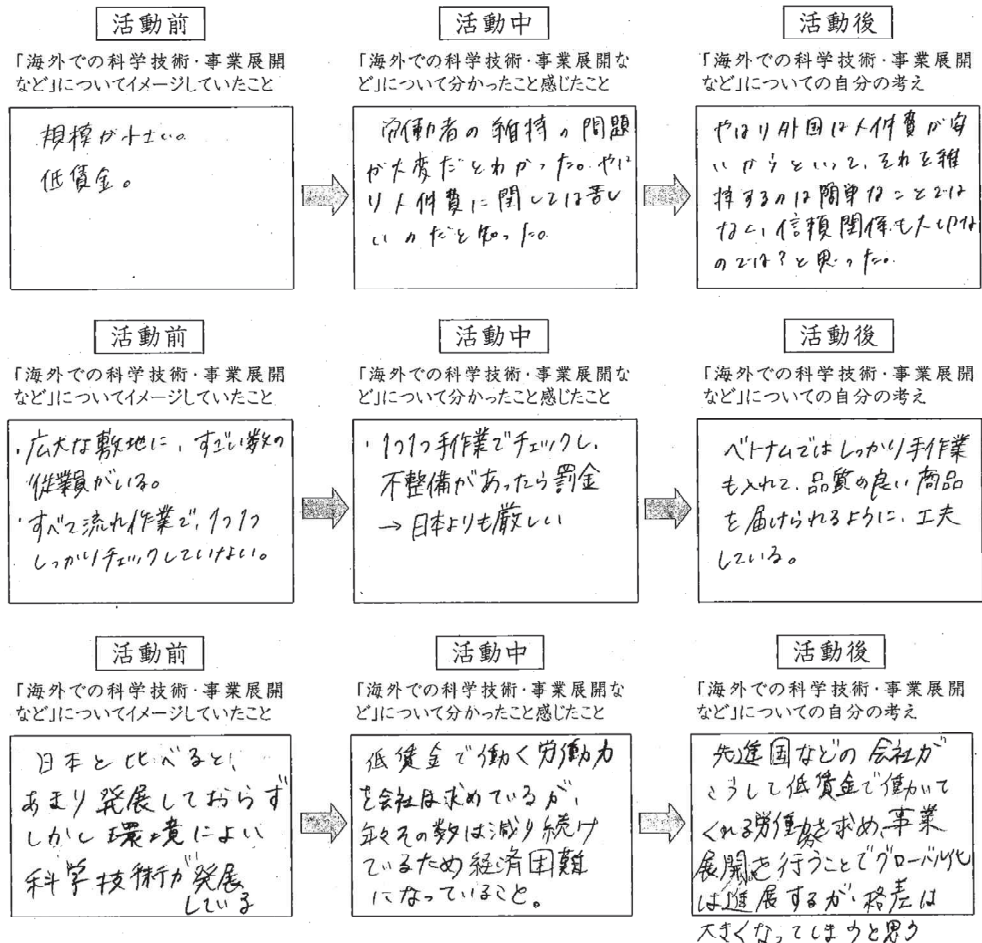 活動前
「海外での科学技術・事業展開
など」についてイメージしていたこと
規模が小さい。
低賃金。
活動中
「海外での科学技術・事業展開な
ど」について分かったこと感じたこと
労働者の維持の問題
が大変だとわかった。やは
り人件費に関しては苦し
いのだと知った。
活動後
「海外での科学技術・事業展開
など」についての自分の考え
やはり外国は人件費が安
いからといって、それを維
持するのは簡単なことでは
なく、信頼関係も大切な
のでは?と思った。
活動前
「海外での科学技術・事業展開
など」についてイメージしていたこと
・広大な敷地に、すごい数の
従業員がいる。
・すべて流れ作業で、1つ1つ
しっかりチェックしていない。
活動中
「海外での科学技術・事業展開な
ど」について分かったこと感じたこと
・1つ1つ手作業でチェックし、
不整備があったら罰金
→日本よりも厳しい
活動後
「海外での科学技術・事業展開
など」についての自分の考え
ベトナムではしっかり手作業
も入れて、品質の良い商品
を届けられるように、工夫
している。
活動前
「海外での科学技術・事業展開
など」についてイメージしていたこと
日本と比べると、
あまり発展しておらず
しかし環境によい
科学技術が発展
している
活動中
「海外での科学技術・事業展開な
ど」について分かったこと感じたこと
低賃金で働く労働力
を会社は求めているが、
年々その数は減り続け
ているため経済困難
になっていること。
活動後
「海外での科学技術・事業展開
など」についての自分の考え
先進国などの会社が
こうして低賃金で働いて
くれる労働力を求め、事業
展開を行うことでグローバル化
は進展するが、格差は
大きくなってしまうと思う